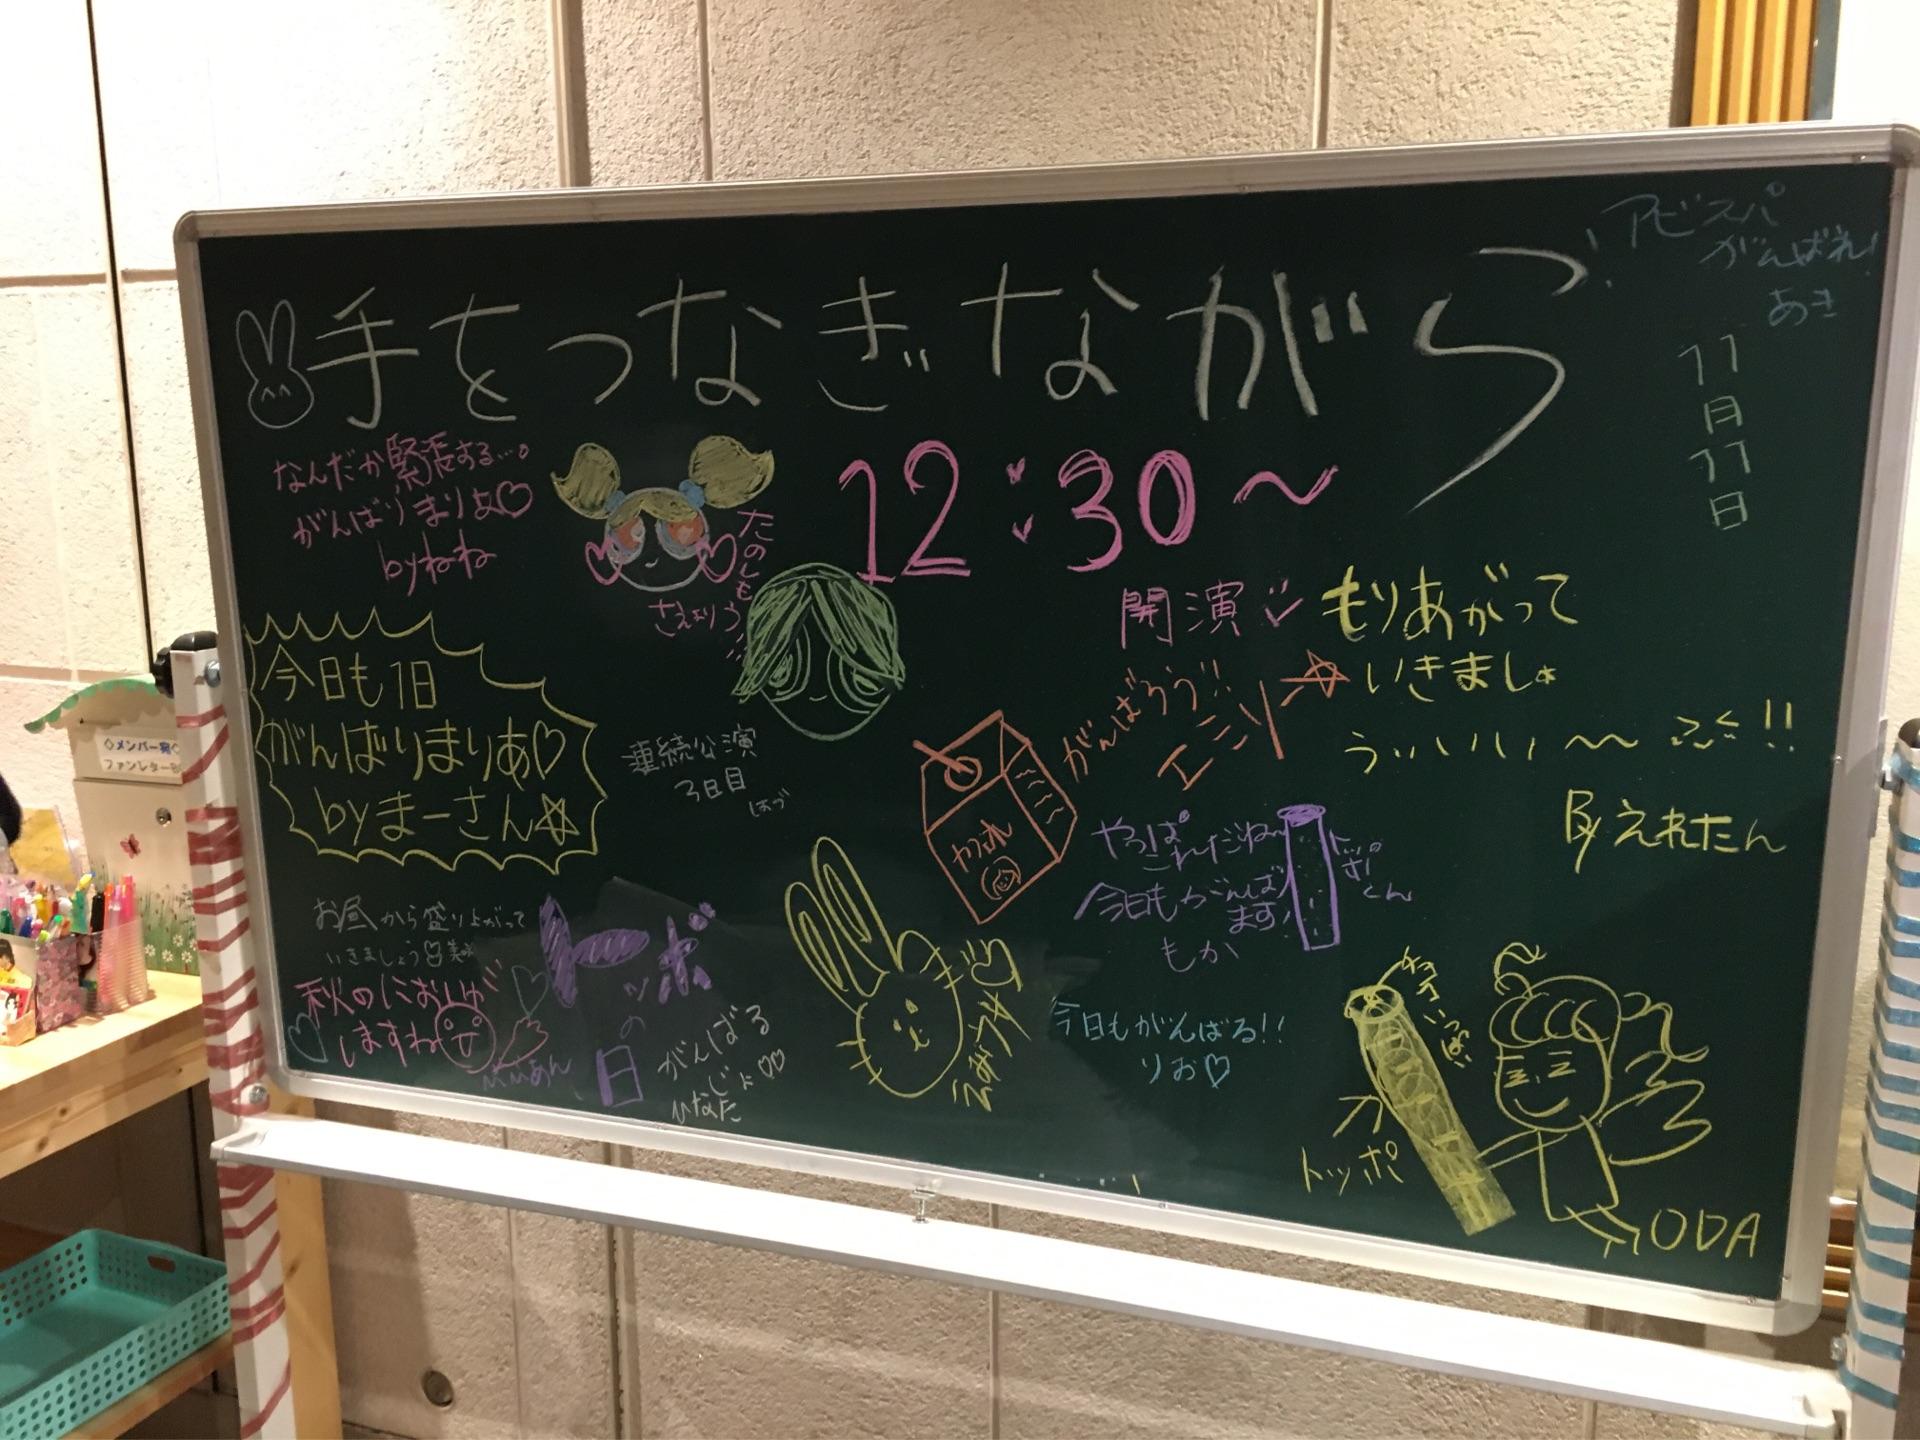 アビスパ
がんばれ!
あき
手をつなぎながら
11
月
11
日
12:30〜
開演
なんだか緊張する…。
がんばりまりあ♡
byねね
たのしも
う!!
さえより
今日も1日
がんばりまりあ♡
byまーさん☆
連続公演
3日目
はづ
がんばろう!!
エミリー☆
カフェオレ
もりあがって
いきましょ
ういいいい〜〜ふぅ!!
By えれたん
やっぱ
これだね〜
今日もがんば
ります!
もか
トッポ
くん
お昼から盛り上がって
いきましょう
秋のにおいが
しますね
トッポ
の
日
がんばる
ひなた
今日もがんばる!!
りお♡
チョコいっぱい
トッポ
ODA
◇メンバー宛◇
ファンレター